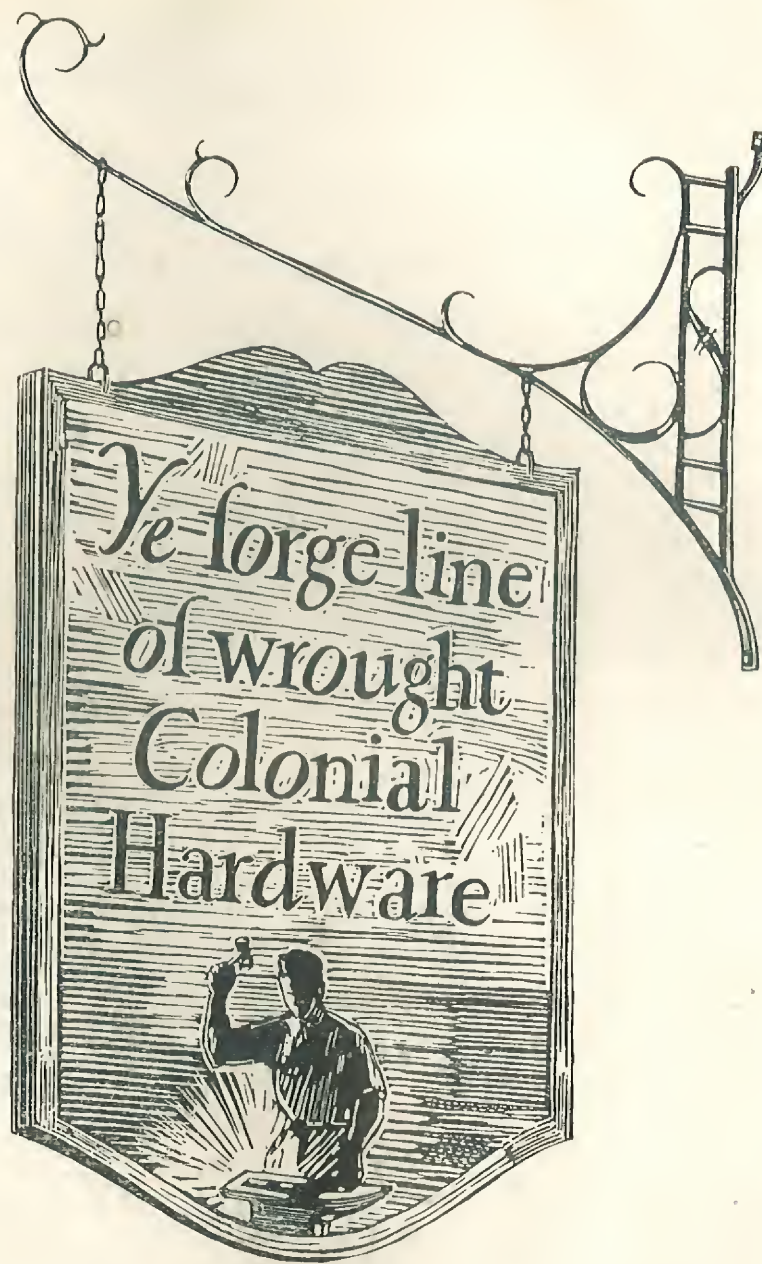 Ye forge line
of wrought
Colonial
Hardware